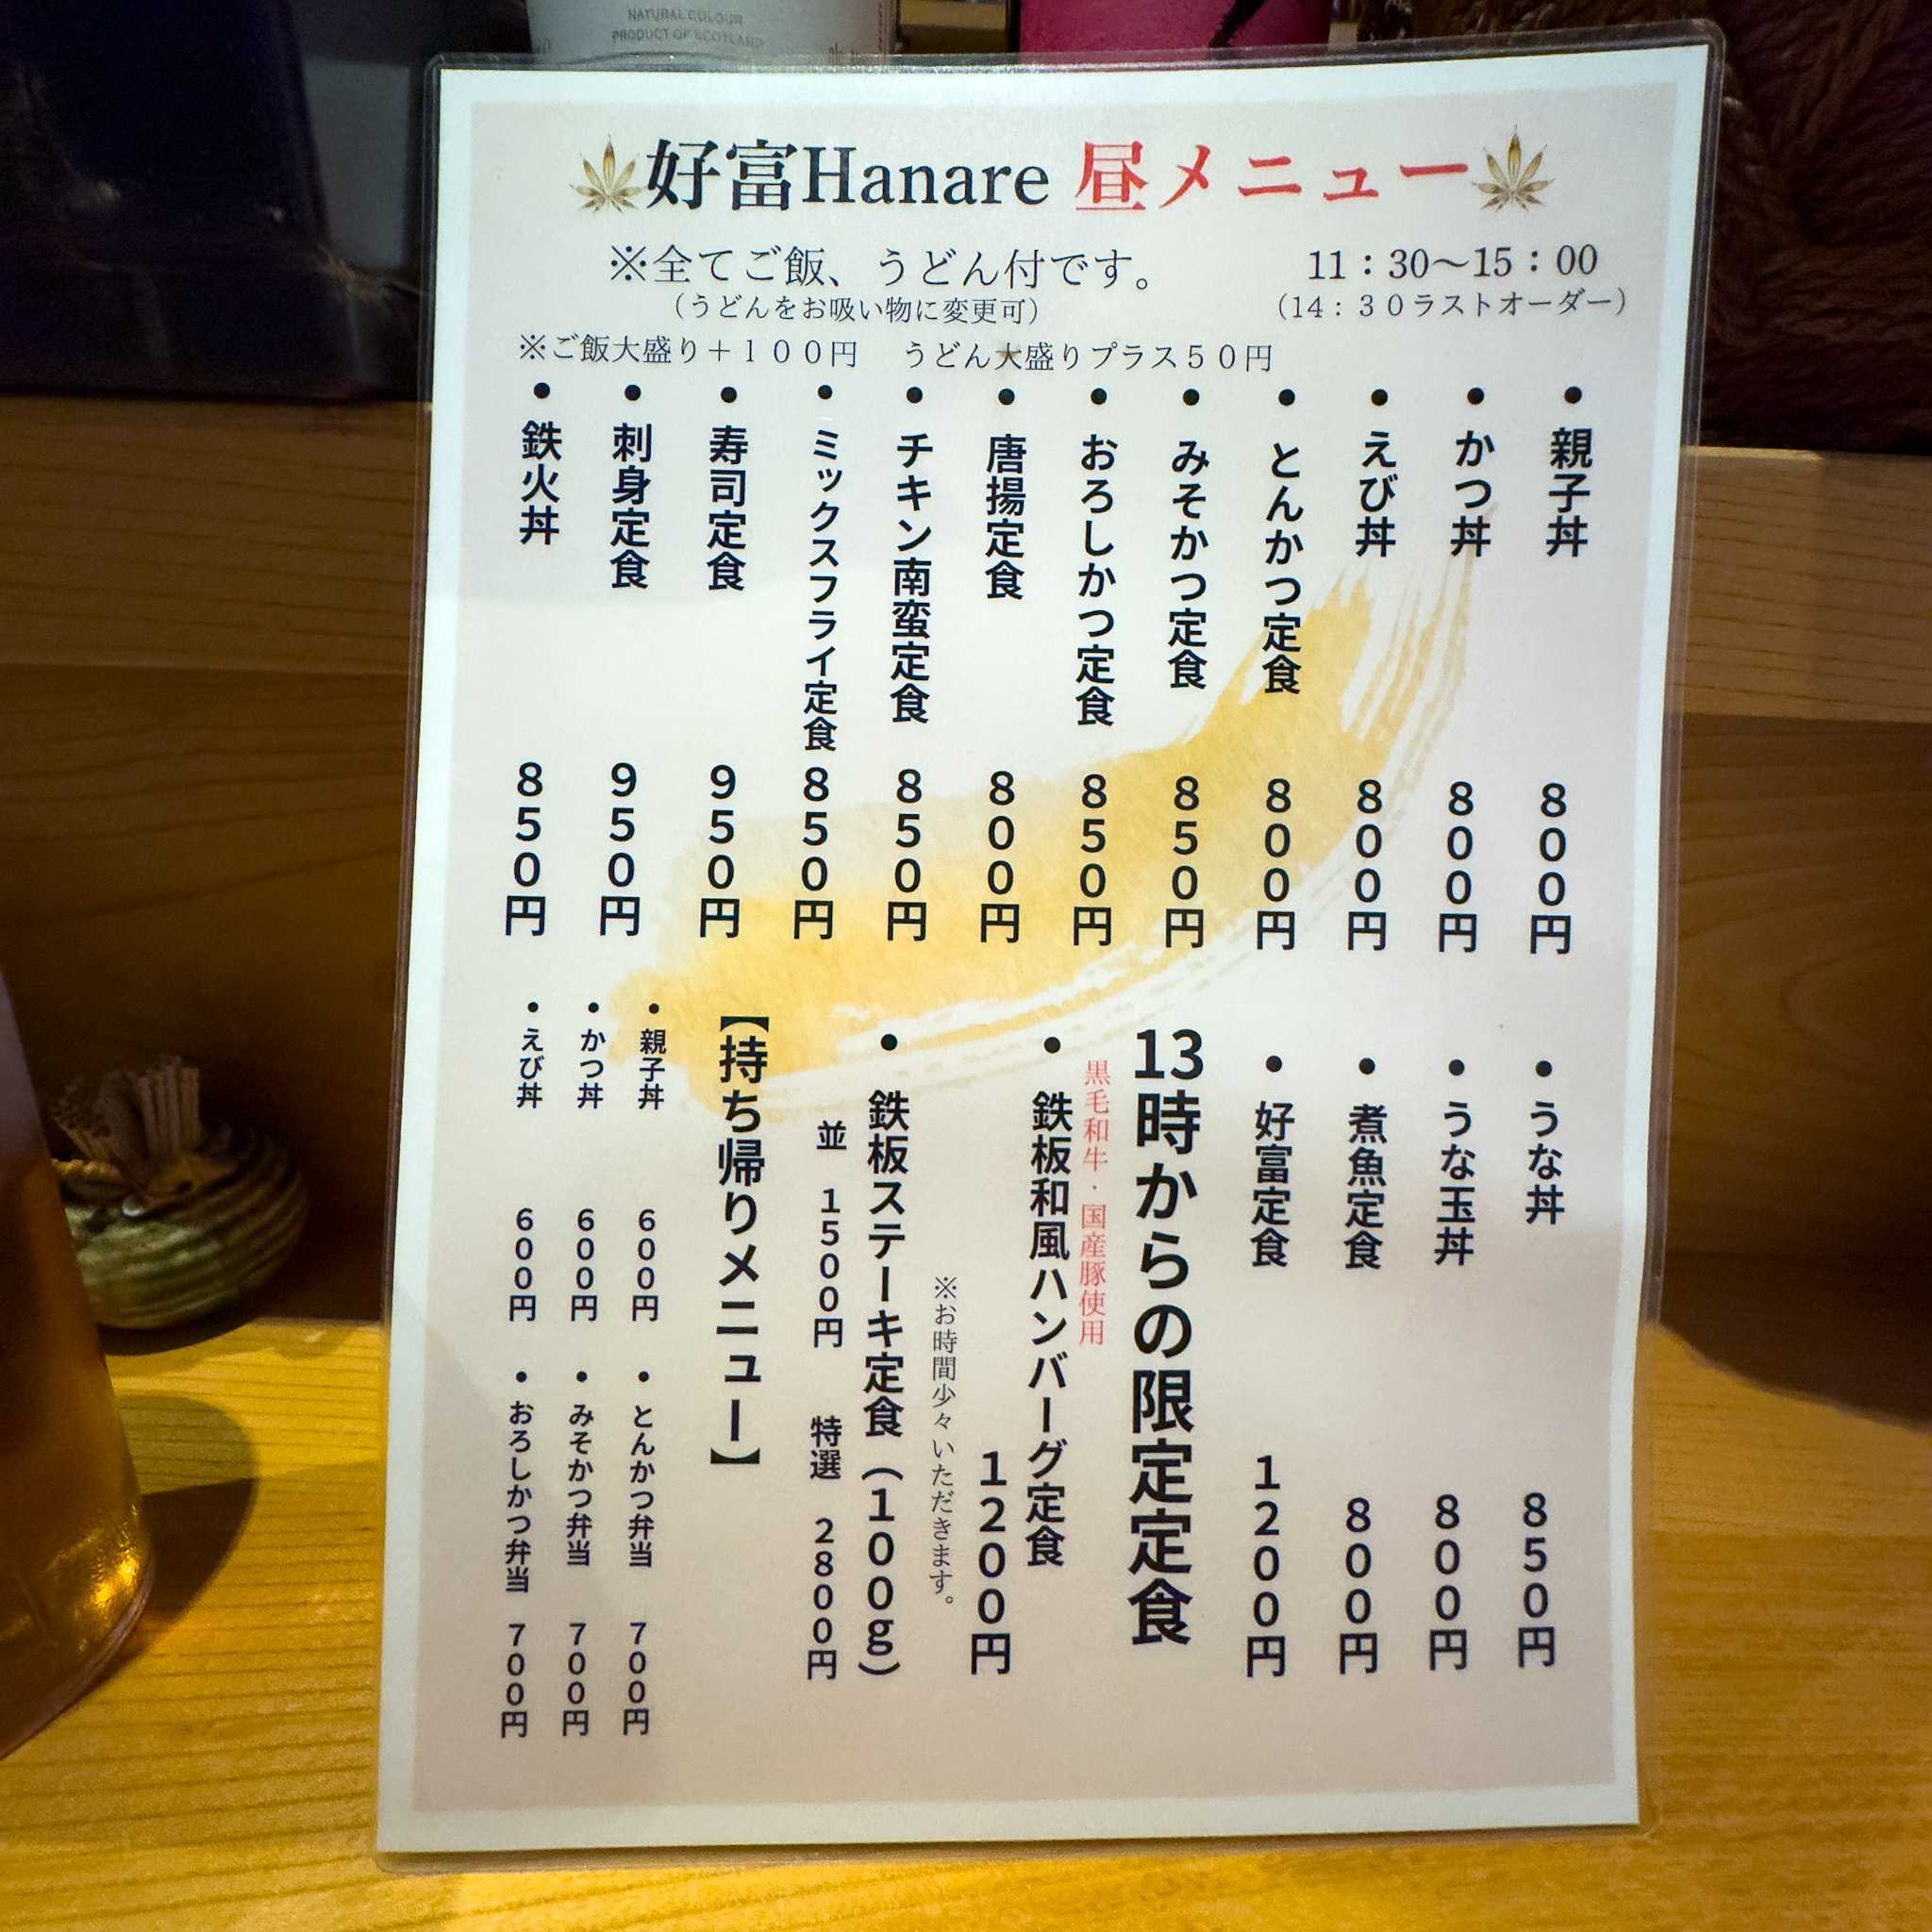 NATURAL COLOUR
PRODUCT OF SCOTLAND
好富Hanare 昼メニュー
※全てご飯、うどん付です。
（うどんをお吸い物に変更可）
11：30〜15：00
（14：３０ラストオーダー）
※ご飯大盛り＋１００円　うどん大盛りプラス５０円
・親子丼　８００円
・かつ丼　８００円
・えび丼　８００円
・とんかつ定食　８００円
・みそかつ定食　８５０円
・おろしかつ定食　８５０円
・唐揚定食　８００円
・チキン南蛮定食　８５０円
・ミックスフライ定食　８５０円
・寿司定食　９５０円
・刺身定食　９５０円
・鉄火丼　８５０円
・うな丼　８５０円
・うな玉丼　８００円
・煮魚定食　８００円
・好富定食　１２００円
13時からの限定定食
黒毛和牛・国産豚使用
・鉄板和風ハンバーグ定食
１２００円
※お時間少々いただきます。
・鉄板ステーキ定食（１００ｇ）
並　１５００円　特選　２８００円
【持ち帰りメニュー】
・親子丼　６００円
・かつ丼　６００円
・えび丼　６００円
・とんかつ弁当　７００円
・みそかつ弁当　７００円
・おろしかつ弁当　７００円